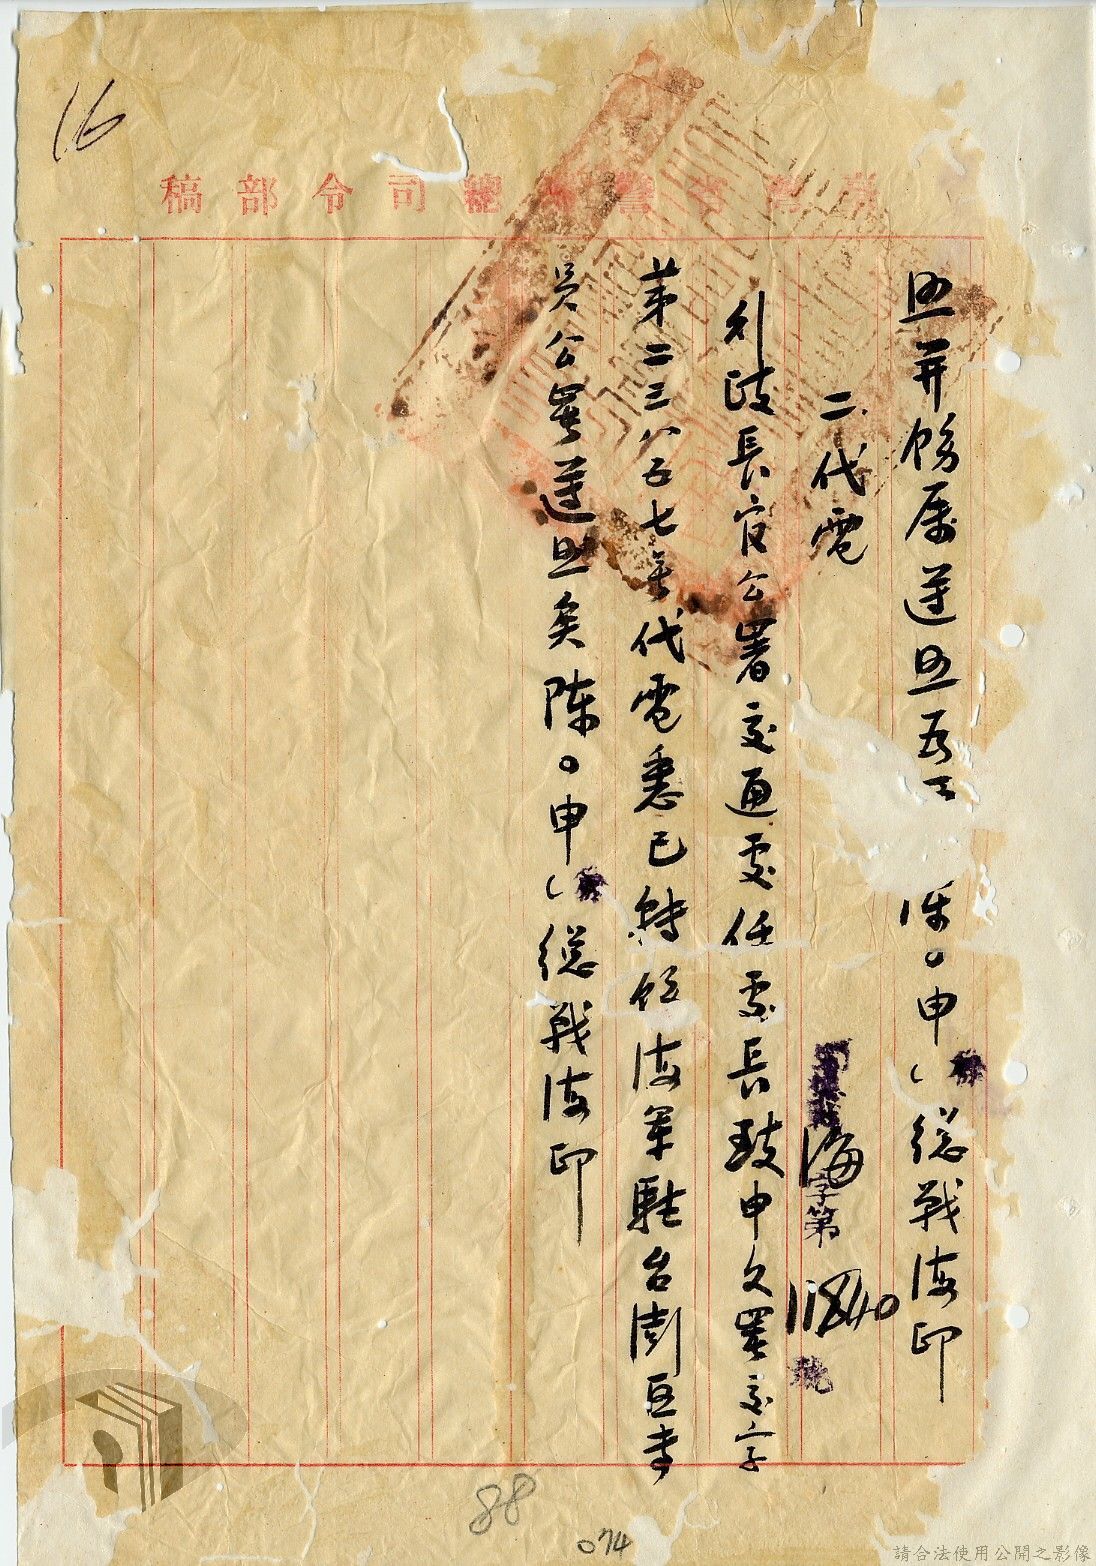 16
臺灣省警備總司令部稿
照并飭屬遵照為 陳○申（ ）總戰海印
二代電
海字第11840號
行政長官公署交通處任處長 申 署交字
第二三八五七號代電悉已轉飭海軍駐台澎區專
員公署遵照矣陳○申（ ）總戰海印
88
074
請合法使用公開之影像